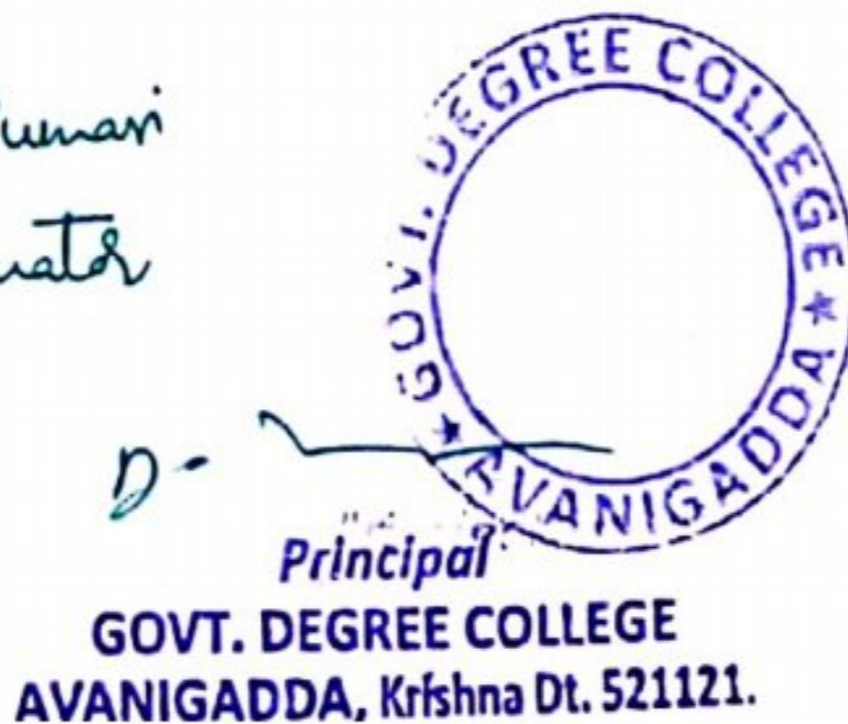 GOVT. DEGREE COLLEGE ★
AVANIGADDA ★
D-
Principal
GOVT. DEGREE COLLEGE
AVANIGADDA, Krishna Dt. 521121.